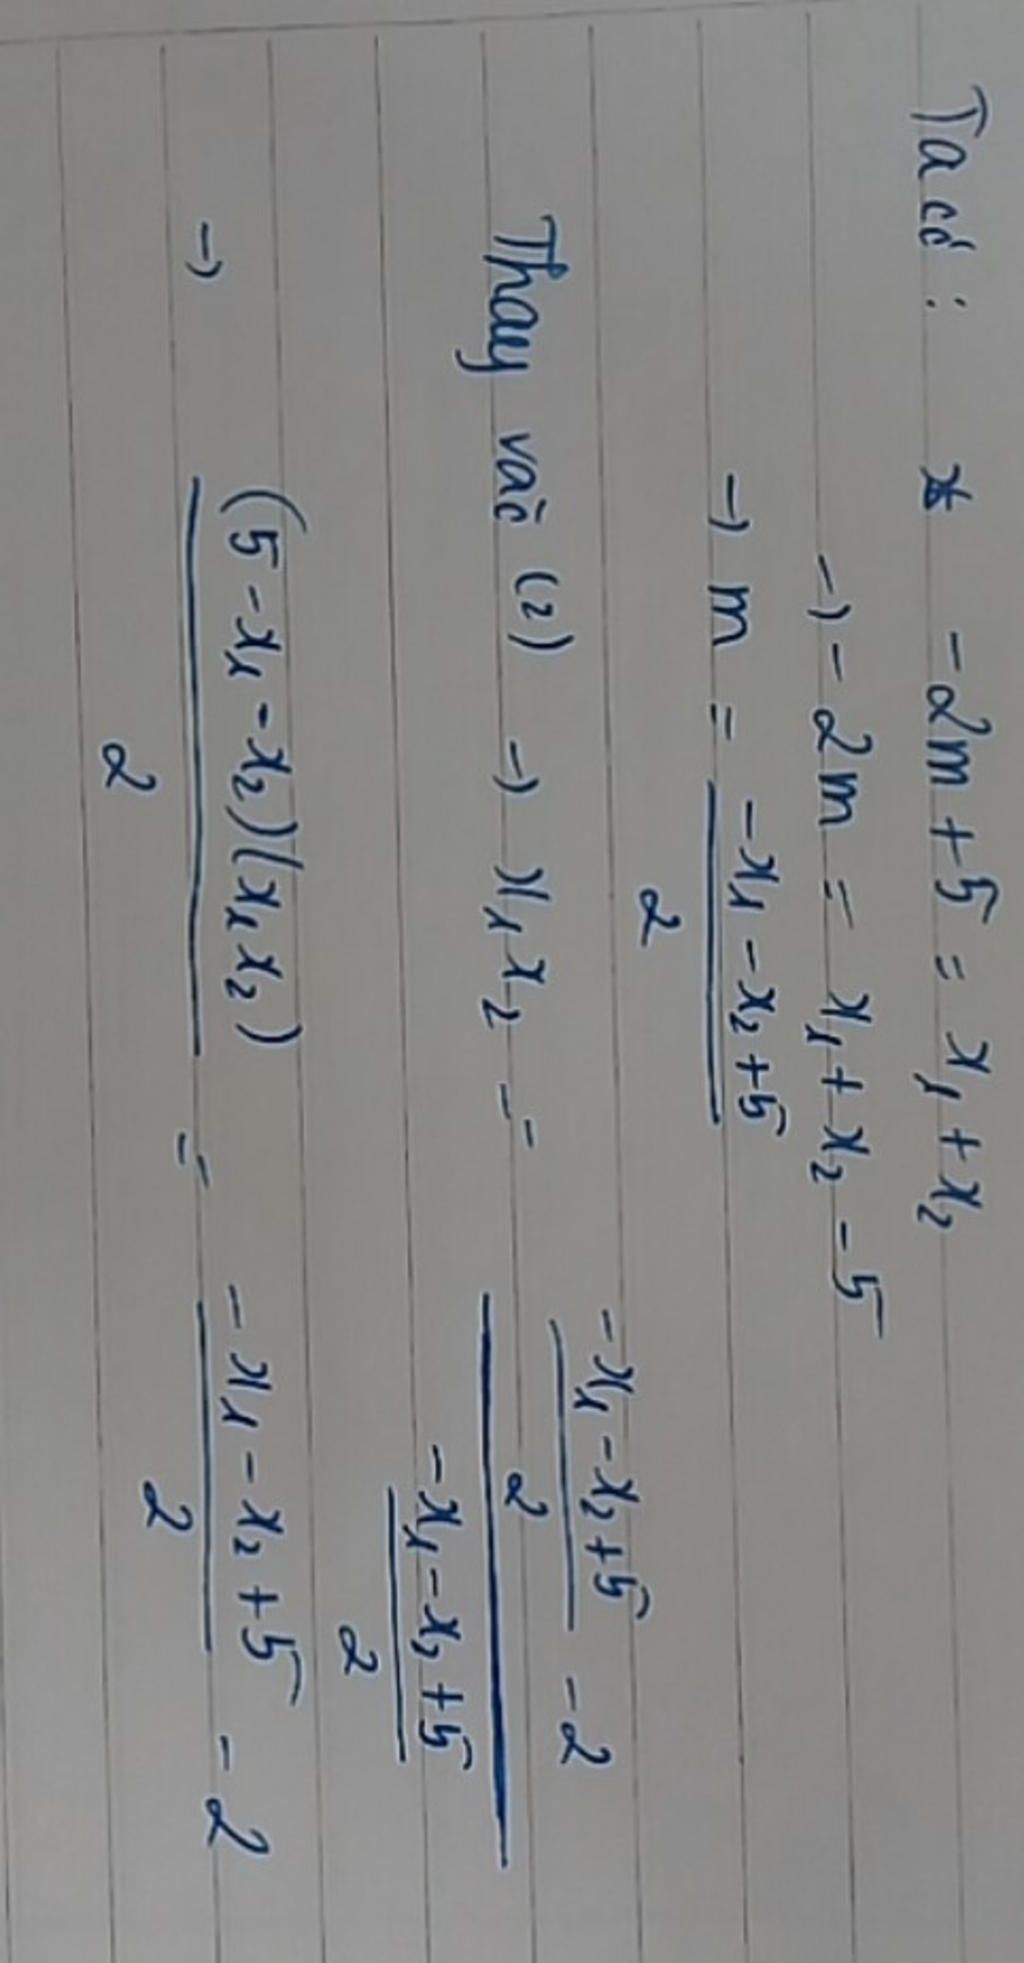 Ta có : * -2m + 5 = x₁ + x₂
→ -2m = x₁ + x₂ - 5
→ m = (-x₁ - x₂ + 5)/2
Thay vào (2) → x₁x₂ = ((-x₁ - x₂ + 5)/2 - 2)/((-x₁ - x₂ + 5)/2)
→ ((5 - x₁ - x₂)(x₁x₂))/2 = (-x₁ - x₂ + 5)/2 - 2